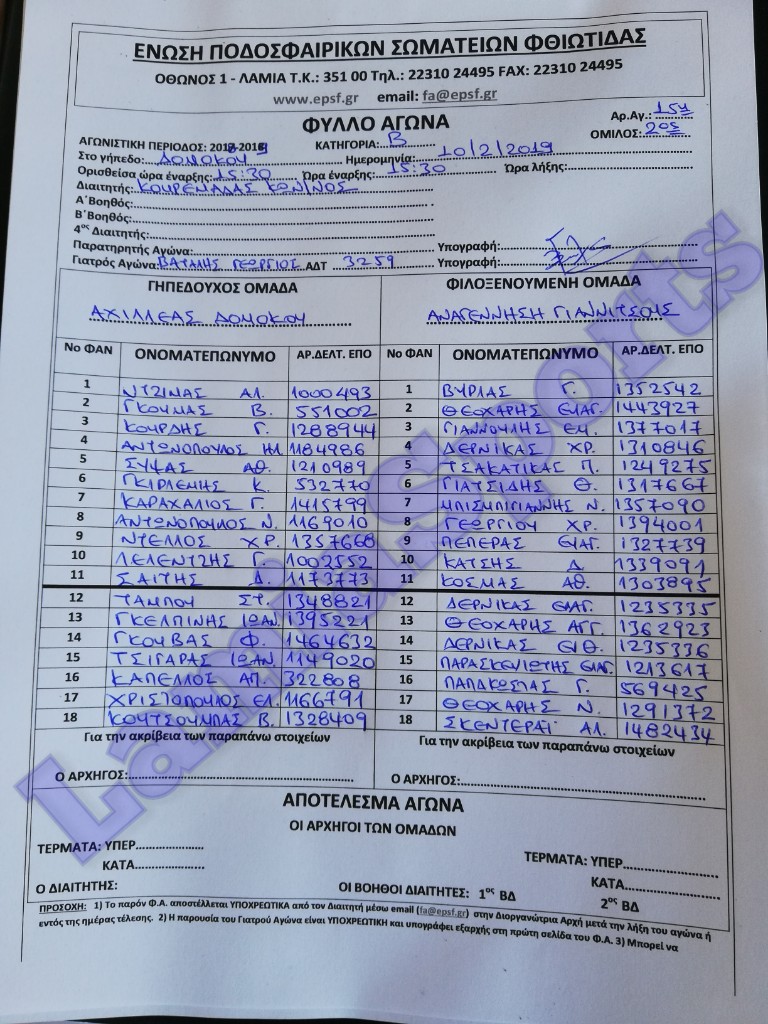 ΕΝΩΣΗ ΠΟΔΟΣΦΑΙΡΙΚΩΝ ΣΩΜΑΤΕΙΩΝ ΦΘΙΩΤΙΔΑΣ
ΟΘΩΝΟΣ 1 - ΛΑΜΙΑ Τ.Κ.: 351 00 Τηλ.: 22310 24495 FAX: 22310 24495
www.epsf.gr email: fa@epsf.gr
ΦΥΛΛΟ ΑΓΩΝΑ
Αρ.Αγ.: 15η
ΑΓΩΝΙΣΤΙΚΗ ΠΕΡΙΟΔΟΣ: 2018-2019 ΚΑΤΗΓΟΡΙΑ: Β ΟΜΙΛΟΣ: 2ος
Στο γήπεδο: ΔΟΜΟΚΟΥ Ημερομηνία: 10/2/2019
Ορισθείσα ώρα έναρξης: 15:30 Ώρα έναρξης: 15:30 Ώρα λήξης:
Διαιτητής: ΚΟΥΡΕΜΑΔΑΣ ΚΩΝ/ΝΟΣ
Α΄Βοηθός:
Β΄Βοηθός:
4ος Διαιτητής:
Παρατηρητής Αγώνα: Υπογραφή:
Γιατρός Αγώνα: ΓΕΩΡΓΙΟΣ ΑΔΤ 3259 Υπογραφή:
ΓΗΠΕΔΟΥΧΟΣ ΟΜΑΔΑ ΦΙΛΟΞΕΝΟΥΜΕΝΗ ΟΜΑΔΑ
ΑΧΙΛΛΕΑΣ ΔΟΜΟΚΟΥ ΑΝΑΓΕΝΝΗΣΗ ΓΙΑΝΝΙΤΣΟΥΣ
Νο ΦΑΝ ΟΝΟΜΑΤΕΠΩΝΥΜΟ ΑΡ.ΔΕΛΤ. ΕΠΟ Νο ΦΑΝ ΟΝΟΜΑΤΕΠΩΝΥΜΟ ΑΡ.ΔΕΛΤ. ΕΠΟ
1 ΝΤΖΙΜΑΣ ΑΛ. 1000493 1 ΒΥΡΛΑΣ Γ. 1352542
2 ΓΚΟΥΜΑΣ Β. 551002 2 ΘΕΟΧΑΡΗΣ ΕΥΑΓ. 1443927
3 ΚΟΥΡΔΗΣ Γ. 1288944 3 ΓΙΑΝΝΟΥΛΗΣ ΕΜ. 1377017
4 ΑΝΤΩΝΟΠΟΥΛΟΣ ΗΛ 1184986 4 ΔΕΡΝΙΚΑΣ ΧΡ. 1310846
5 ΣΥΨΑΣ ΑΘ. 1210989 5 ΤΣΑΚΑΤΙΚΑΣ Π. 1249275
6 ΓΚΙΡΛΕΜΗΣ Κ. 532770 6 ΓΙΑΤΣΙΔΗΣ Θ. 1317667
7 ΚΑΡΑΧΑΛΙΟΣ Γ. 1415799 7 ΜΠΙΣΜΠΙΓΙΑΝΝΗΣ Ν. 1357090
8 ΑΝΤΩΝΟΠΟΥΛΟΣ Ν. 1169010 8 ΓΕΩΡΓΙΟΥ ΧΡ. 1394001
9 ΝΤΕΛΛΟΣ ΧΡ. 1357668 9 ΠΕΠΕΡΑΣ ΕΥΑΓ. 1327739
10 ΛΕΛΕΝΤΖΗΣ Γ. 1002552 10 ΚΑΤΣΗΣ Δ 1339091
11 ΣΑΙΤΗΣ Δ. 1173773 11 ΚΟΣΜΑΣ ΑΘ. 1303895
12 ΤΑΜΠΟΥ ΣΤ. 1348821 12 ΔΕΡΝΙΚΑΣ ΕΥΑΓ. 1235335
13 ΓΚΕΛΠΙΝΗΣ ΙΩΑΝ. 1395221 13 ΘΕΟΧΑΡΗΣ ΑΓΓ. 1362923
14 ΓΚΟΥΒΑΣ Φ. 1464632 14 ΔΕΡΝΙΚΑΣ ΕΥΘ. 1235336
15 ΤΣΙΓΑΡΑΣ ΙΩΑΝ. 1149020 15 ΠΑΡΑΣΚΕΥΙΩΤΗΣ ΕΥΑΓ. 1213617
16 ΚΑΠΕΛΛΟΣ ΑΠ. 322808 16 ΠΑΠΑΚΩΣΤΑΣ Γ. 569425
17 ΧΡΙΣΤΟΠΟΥΛΟΣ ΕΛ. 1166791 17 ΘΕΟΧΑΡΗΣ Ν. 1291372
18 ΚΟΥΤΣΟΥΜΠΑΣ Β. 1328409 18 ΣΚΕΝΤΕΡΑΪ ΑΛ. 1482434
Για την ακρίβεια των παραπάνω στοιχείων Για την ακρίβεια των παραπάνω στοιχείων
Ο ΑΡΧΗΓΟΣ: Ο ΑΡΧΗΓΟΣ:
ΑΠΟΤΕΛΕΣΜΑ ΑΓΩΝΑ
ΟΙ ΑΡΧΗΓΟΙ ΤΩΝ ΟΜΑΔΩΝ
ΤΕΡΜΑΤΑ: ΥΠΕΡ ΤΕΡΜΑΤΑ: ΥΠΕΡ
ΚΑΤΑ ΚΑΤΑ
Ο ΔΙΑΙΤΗΤΗΣ: ΟΙ ΒΟΗΘΟΙ ΔΙΑΙΤΗΤΕΣ: 1ος ΒΔ 2ος ΒΔ
ΠΡΟΣΟΧΗ: 1) Το παρόν Φ.Α. αποστέλλεται ΥΠΟΧΡΕΩΤΙΚΑ από τον Διαιτητή μέσω email (fa@epsf.gr) στην Διοργανώτρια Αρχή μετά την λήξη του αγώνα ή
εντός της ημέρας τέλεσης. 2) Η παρουσία του Γιατρού Αγώνα είναι ΥΠΟΧΡΕΩΤΙΚΗ και υπογράφει εξαρχής στη πρώτη σελίδα του Φ.Α. 3) Μπορεί να
LamiaSports